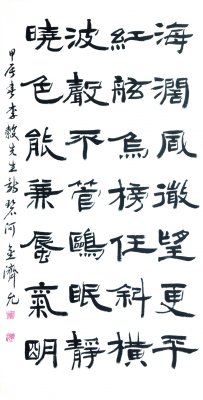 海濶風微望更平
紅舷烏榜任斜橫
波聲不管鷗眠靜
曉色能兼蜃氣明
甲辰 李穀先生詩 碧河 金濟允